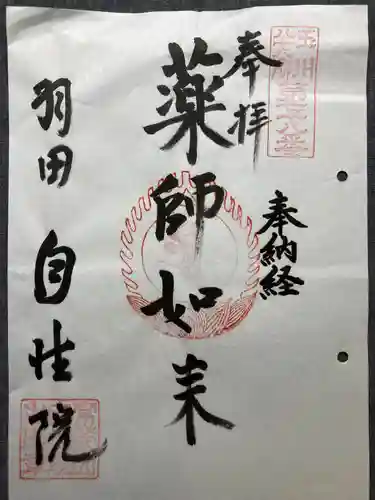 奉拝
奉納経
薬師如来
羽田
自性院